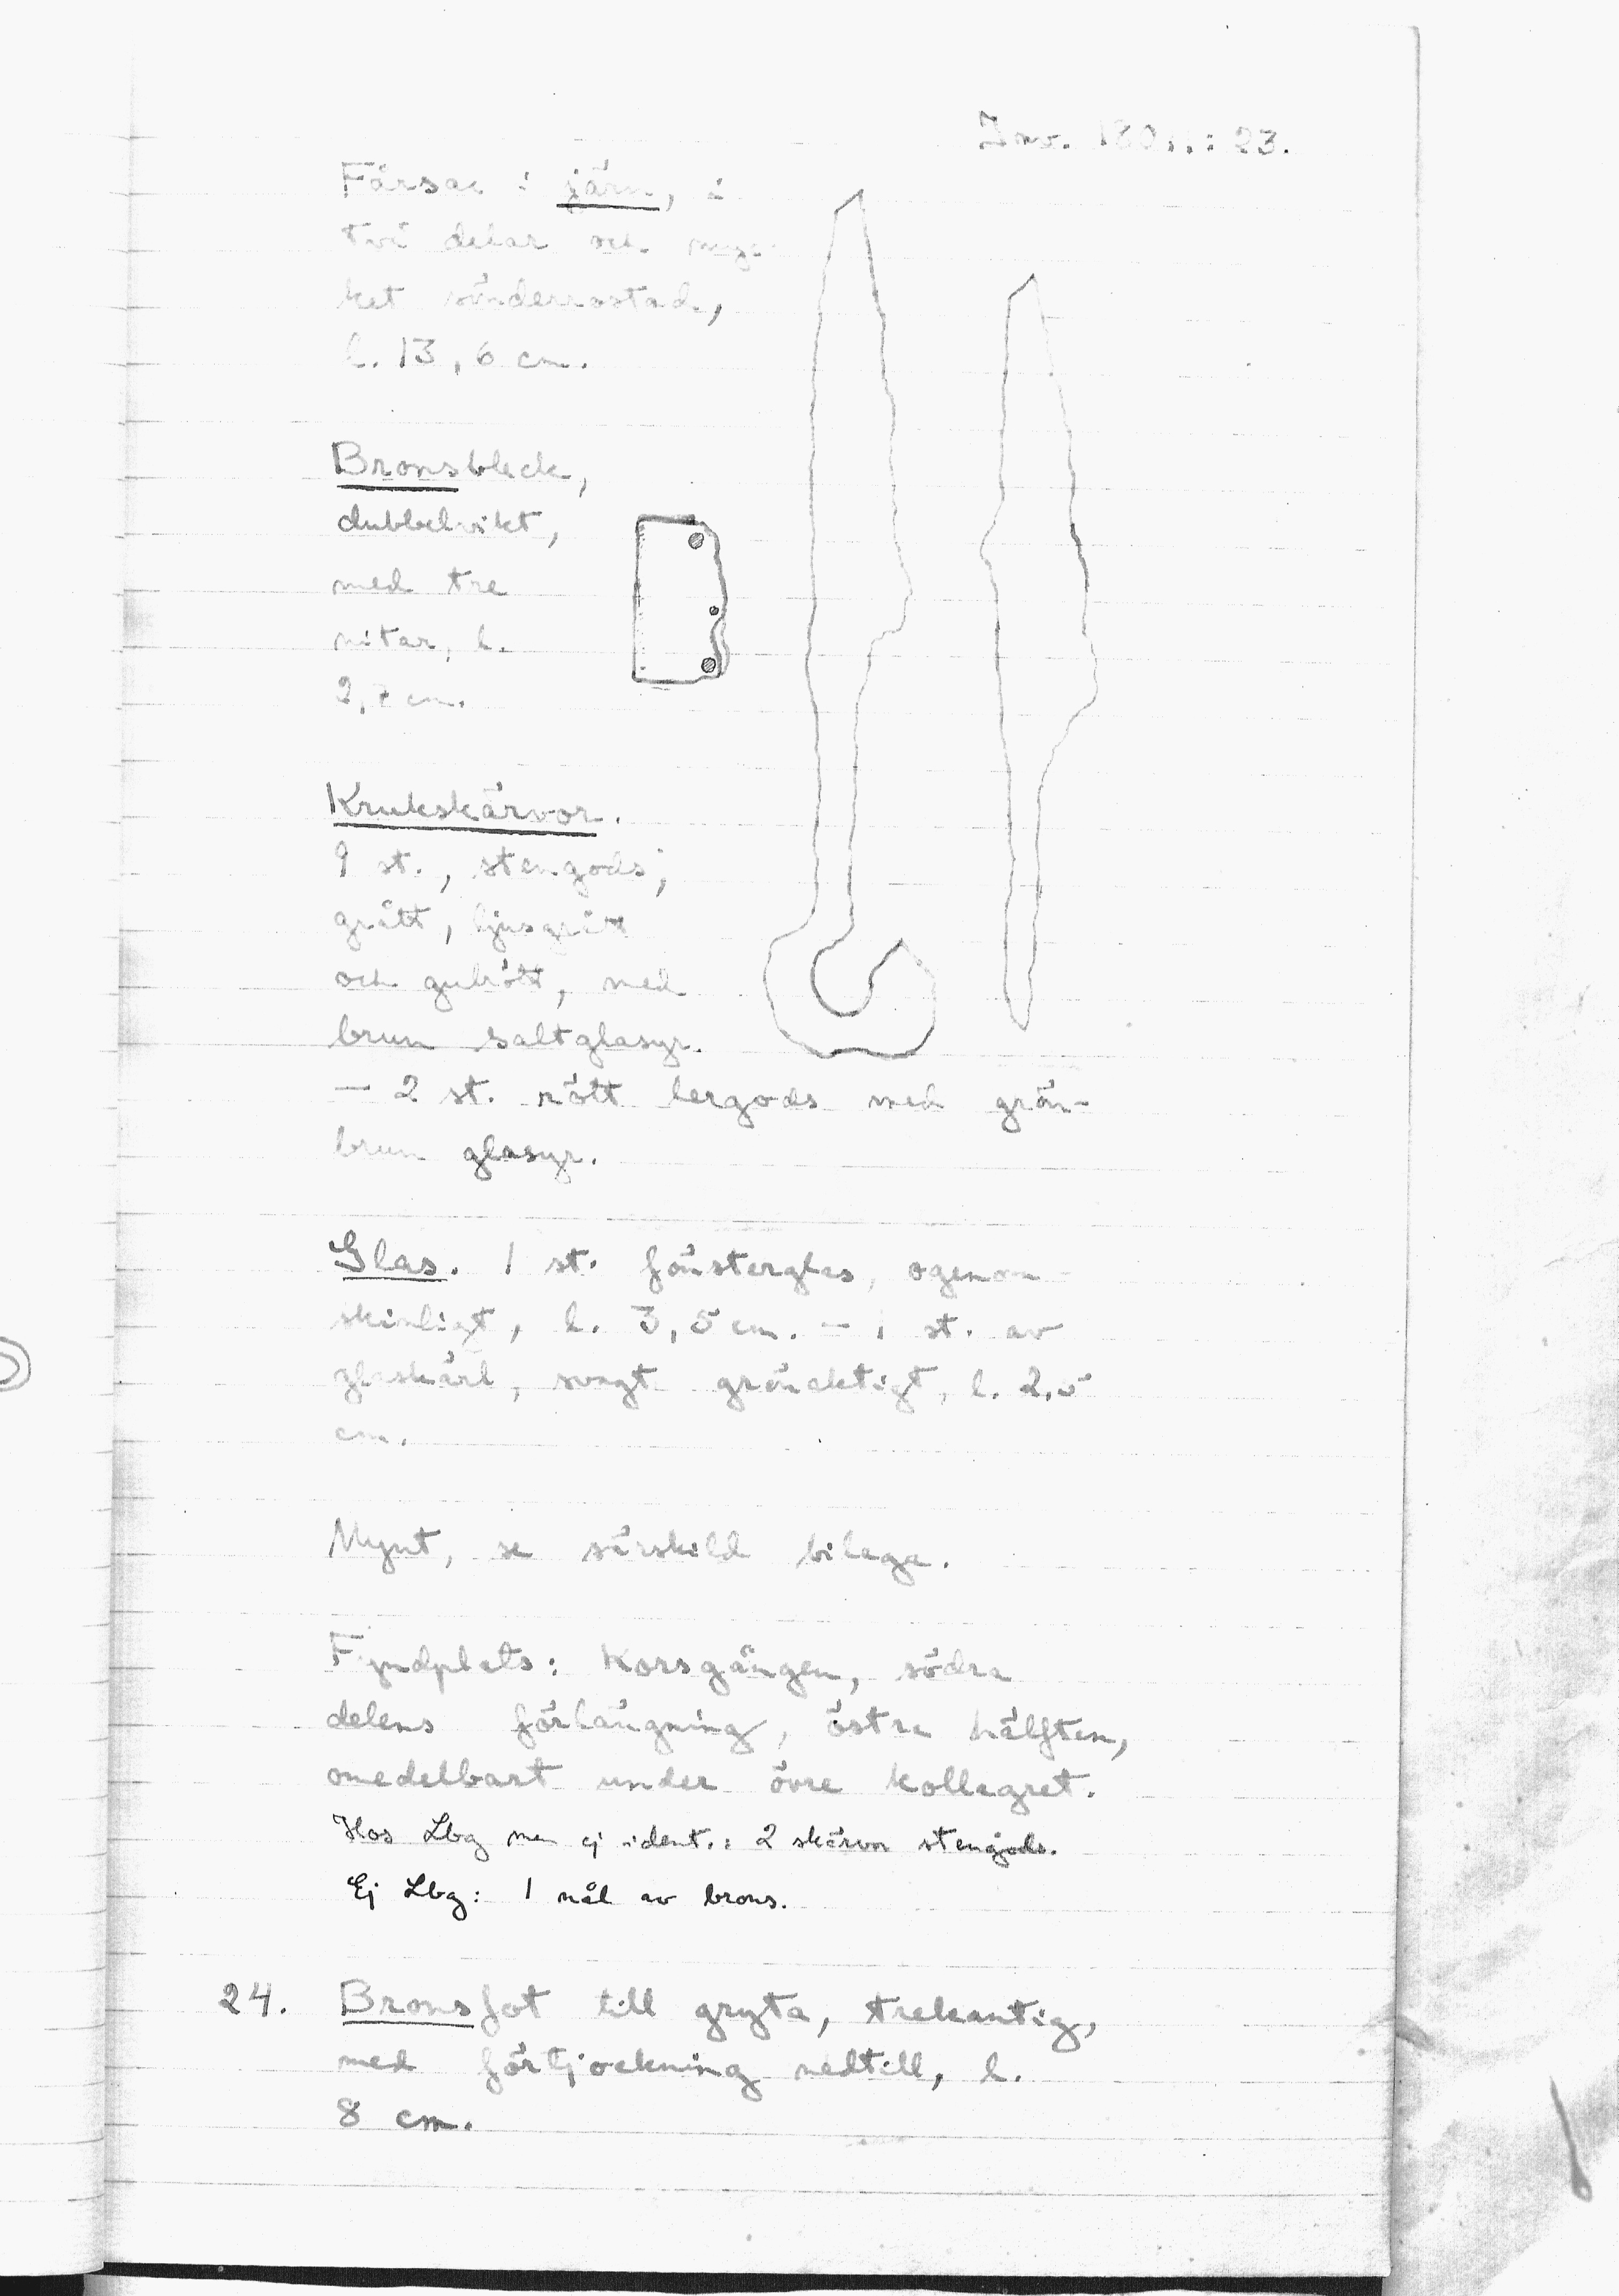 Inv. 180..: 23.
Fårsax i järn, i
två delar och myc-
ket sönderrostad,
l. 13,6 cm.
Bronsbleck,
dubbelvikt,
med tre
nitar, l.
2,7 cm.
Krukskärvor.
9 st., stengods;
grått, ljusgrått
och gulrött, med
brun saltglasyr.
— 2 st. rött lergods med grön-
brun glasyr.
Glas. 1 st. fönsterglas, ogenom-
skinligt, l. 3,5 cm. — 1 st. av
glaskärl, svagt grönaktigt, l. 2,5
cm.
Mynt, se särskild bilaga.
Fyndplats: Korsgången, södra
delens förlängning, östra hälften,
omedelbart under övre kollagret.
Hos Lbg men ej ident.: 2 skärvor stengods.
Ej Lbg: 1 nål av brons.
24. Bronsfot till gryta, trekantig,
med förtjockning nedtill, l.
8 cm.